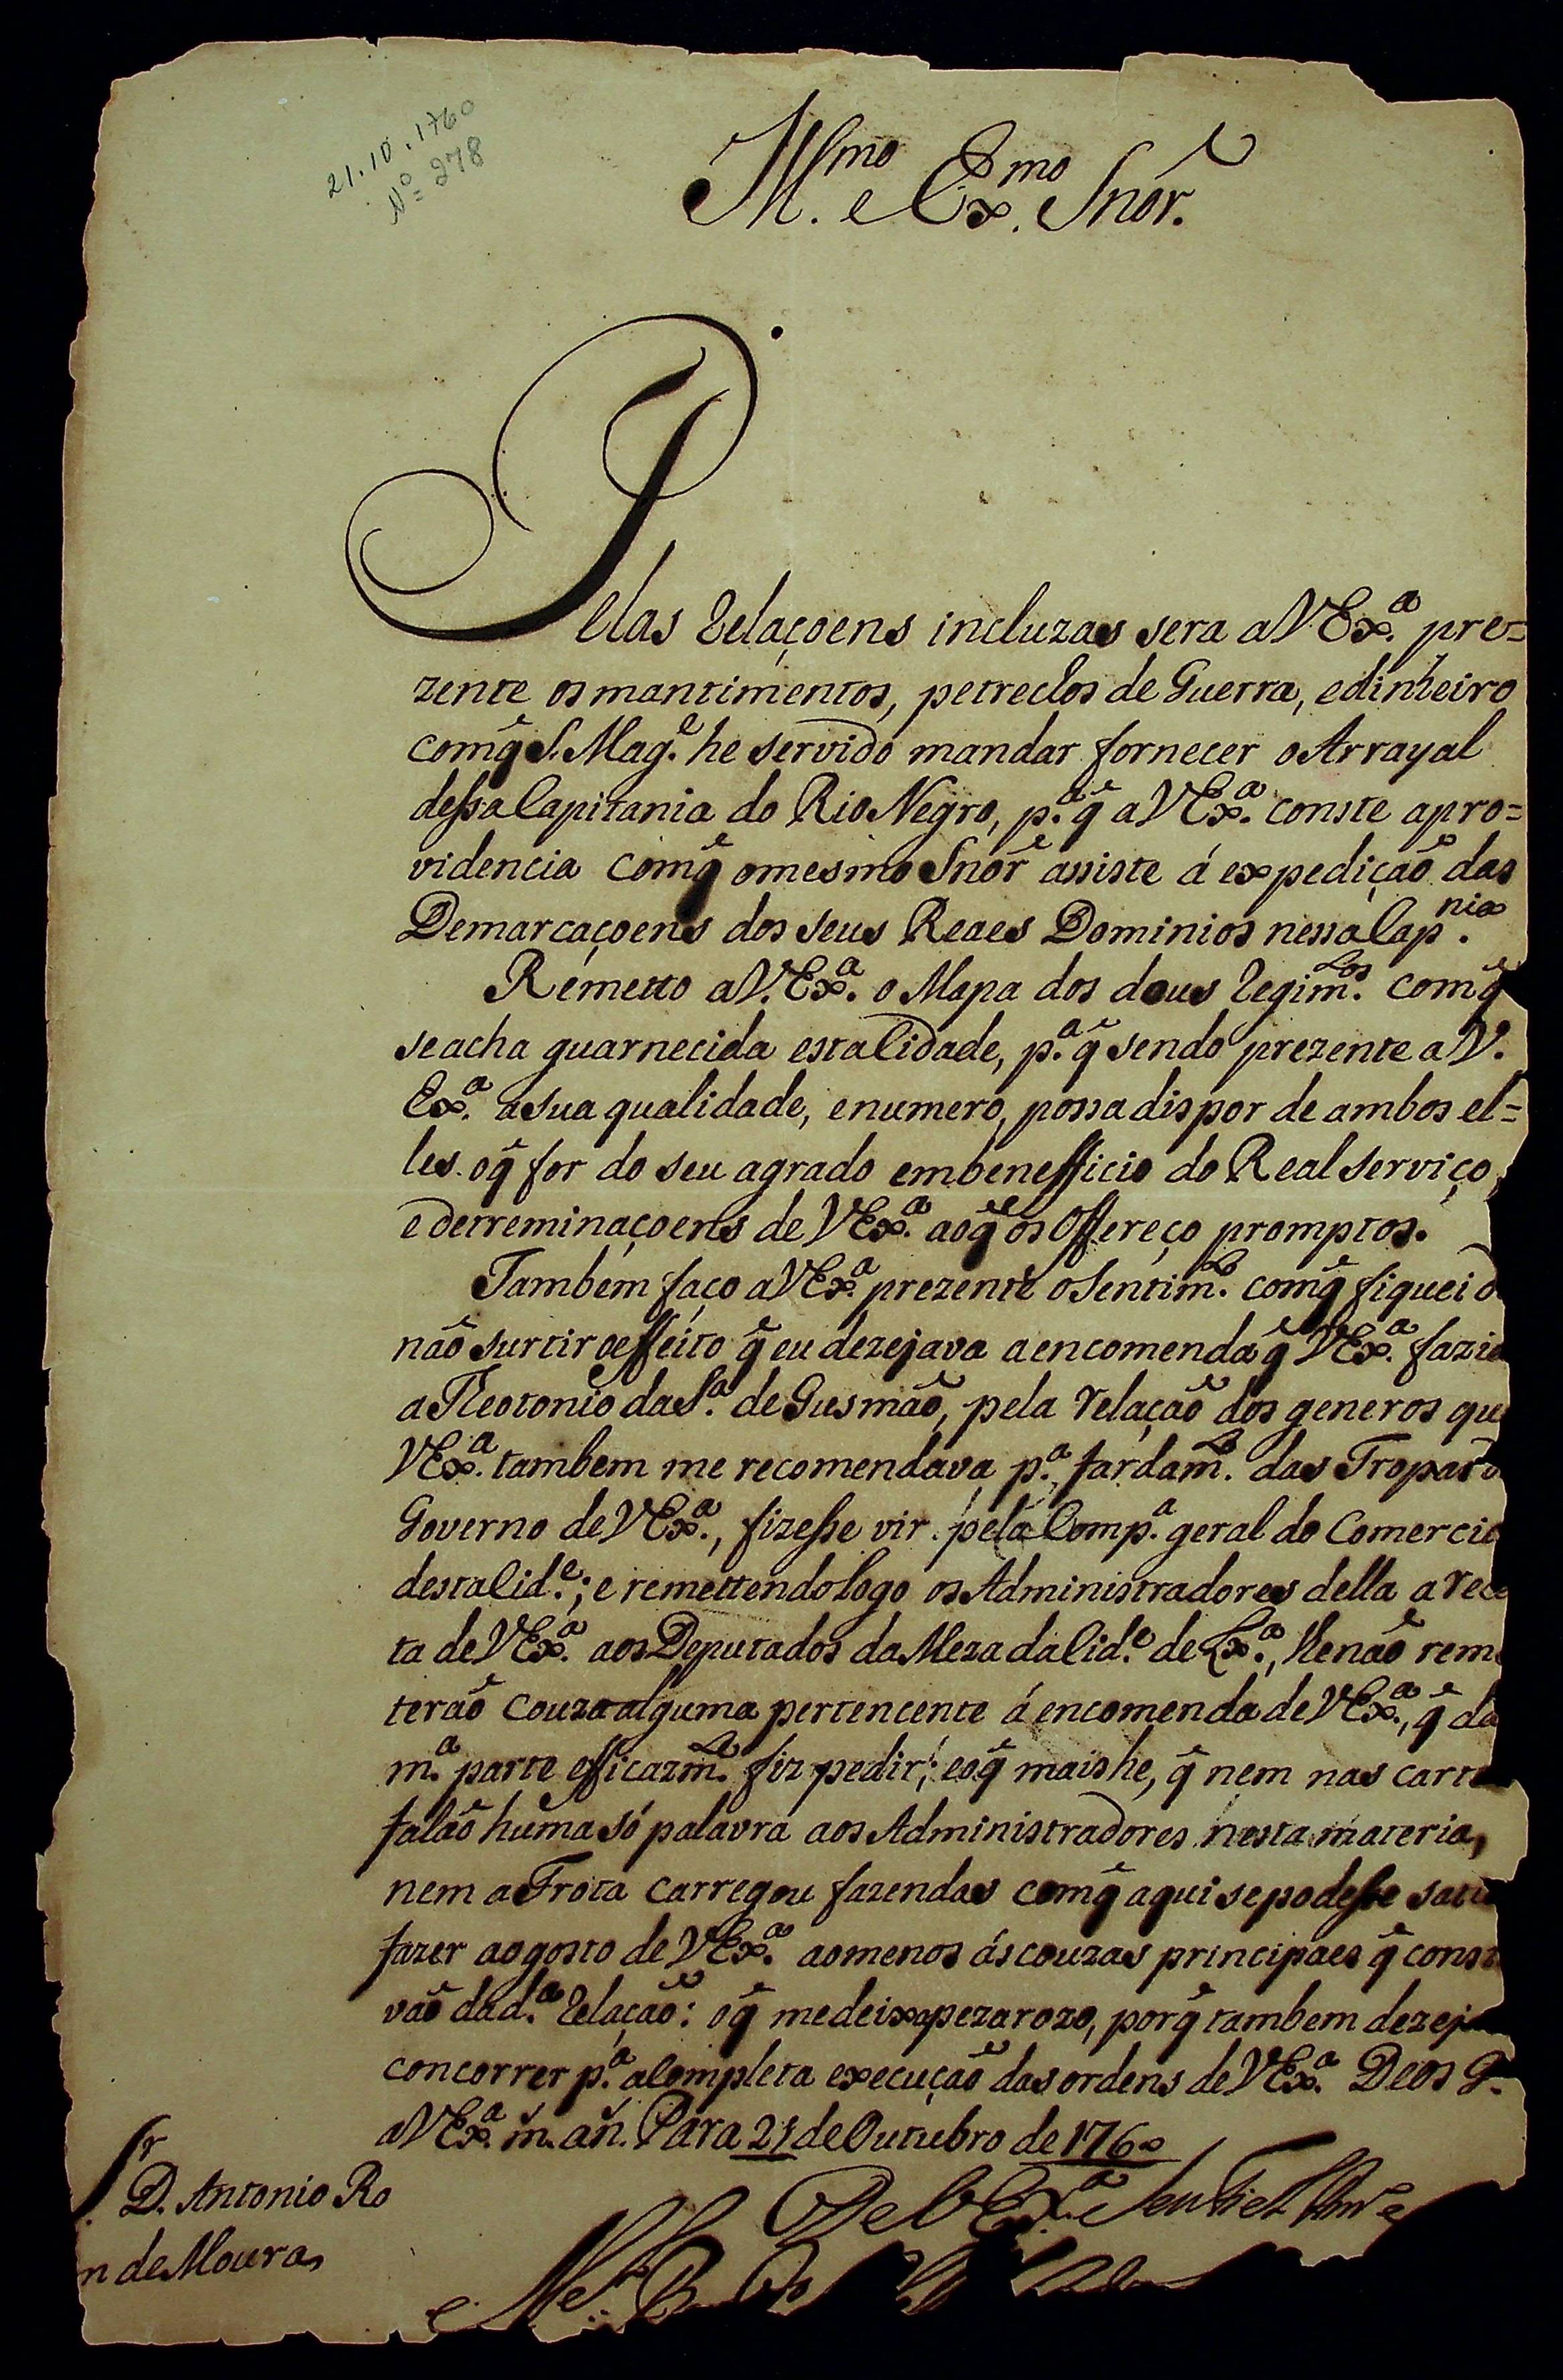 21.10.1760
Nº 278
Illmo e Exmo Snor.
Pelas Relaçoens incluzas sera a VExª. pre=
zente os mantimentos, petreclos de Guerra, e dinheiro
com q̃ S. Magᵉ. he servido mandar fornecer o Arrayal
dessa Capitania do Rio Negro, pª. q̃ a VExª. conste a pro=
videncia com q̃ o mesmo Snor assiste á expedição das
Demarcaçoens dos seus Reaes Dominios nessa Capⁿⁱᵃ.
Remetto a V.Exª. o Mapa dos dous Regimᵗᵒˢ. com q̃
se acha guarnecida esta Cidade, pª. q̃ sendo prezente a V.
Exª. a sua qualidade, e numero, possa dispor de ambos el=
les o q̃ for do seu agrado em benefficio do Real serviço,
e detreminaçoens de VExª. ao q̃ os Offereço promptos.
Tambem faço a VExª. prezente o Sentimᵗᵒ. com q̃ fiquei d
não surtir o effeito q̃ eu dezejava a encomenda q̃ VExª. fazia
a Theotonio da Sª. de Gusmão, pela relação dos generos que
VExª. tambem me recomendava pª. fardamᵗᵒ. das Tropas d
Governo de VExª., fizesse vir pela Compª. geral do Comercio
desta Cidᵉ.; e remettendo logo os Administradores della a rece
ta de VExª. aos Deputados da Meza da Cidᵉ. de Lxª., lhe não reme
terão couza alguma pertencente á encomenda de VExª., q̃ da
mª. parte efficazmᵗᵉ. fiz pedir; e o q̃ mais he, q̃ nem nas cartas
falão huma só palavra aos Administradores nesta materia,
nem a Frota carregou fazendas com q̃ aqui se podesse satis
fazer ao gosto de VExª. ao menos ás couzas principaes q̃ consta
vão da dª. Relação: o q̃ me deixa pezarozo, porq̃ tambem dezejo
concorrer pª. a Completa execução das ordens de VExª. Deos G.
a VExª. m. an. Pará 21 de Outubro de 1760
De VExª
Sʳ. D. Antonio Ro
n de Moura